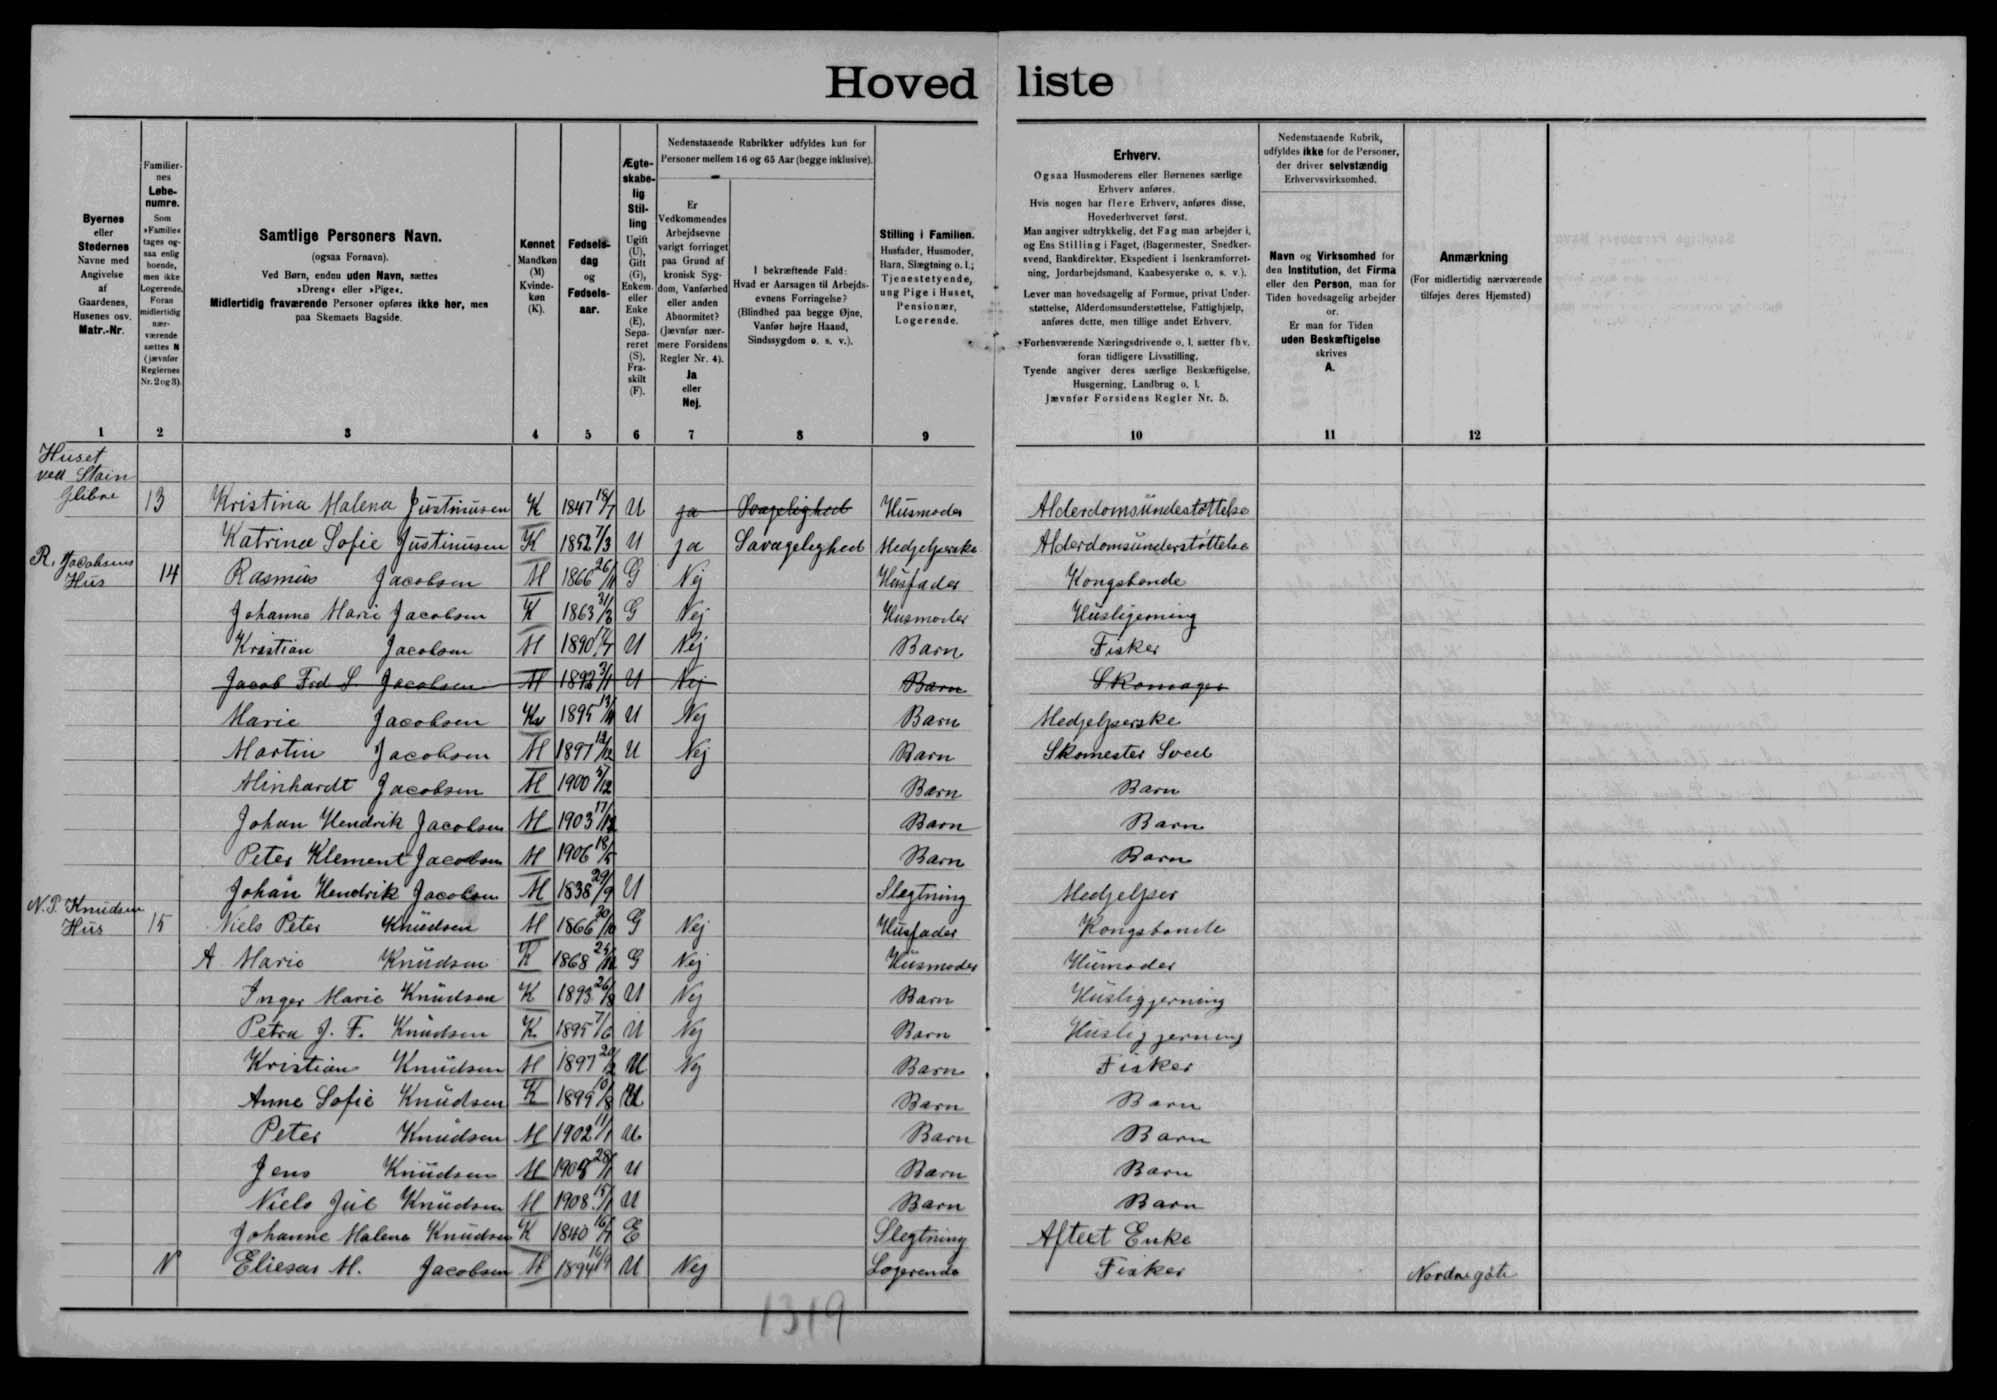 Hovedliste
Byernes
eller
Stedernes
Navne med
Angivelse
af
Gaardenes,
Husenes osv.
Matr.-Nr.
Familier-
nes
Løbe-
numre.
Som
»Familie«
tages og-
saa enlig
boende,
men ikke
Logerende.
Foran
midlertidig
nær-
værende
sættes N
(jævnfør
Reglernes
Nr. 2 og 3).
Samtlige Personers Navn.
(ogsaa Fornavn).
Ved Børn, endnu uden Navn, sættes
»Dreng« eller »Pige«.
Midlertidig fraværende Personer opføres ikke her, men
paa Skemaets Bagside.
Kønnet
Mandkøn
(M)
Kvinde-
køn
(K).
Fødsels-
dag
og
Fødsels-
aar.
Ægte-
skabe-
lig
Stil-
ling
Ugift
(U),
Gift
(G),
Enkem.
eller
Enke
(E),
Sepa-
reret
(S),
Fra-
skilt
(F).
Nedenstaaende Rubrikker udfyldes kun for
Personer mellem 16 og 65 Aar (begge inklusive).
Er
Vedkommendes
Arbejdsevne
varigt forringet
paa Grund af
kronisk Syg-
dom, Vanførhed
eller anden
Abnormitet?
(Jævnfør nær-
mere Forsidens
Regler Nr. 4).
Ja
eller
Nej.
I bekræftende Fald:
Hvad er Aarsagen til Arbejds-
evnens Forringelse?
(Blindhed paa begge Øjne,
Vanfør højre Haand,
Sindssygdom o. s. v.).
Stilling i Familien.
Husfader, Husmoder,
Barn, Slægtning o. l.;
Tjenestetyende,
ung Pige i Huset,
Pensionær,
Logerende.
Erhverv.
Ogsaa Husmoderens eller Børnenes særlige
Erhverv anføres.
Hvis nogen har flere Erhverv, anføres disse,
Hovederhvervet først.
Man angiver udtrykkelig, det Fag man arbejder i,
og Ens Stilling i Faget, (Bagermester, Snedker-
svend, Bankdirektør, Ekspedient i Isenkramforret-
ning, Jordarbejdsmand, Kaabesyerske o. s. v.).
Lever man hovedsagelig af Formue, privat Under-
støttelse, Alderdomsunderstøttelse, Fattighjælp,
anføres dette, men tillige andet Erhverv.
Forhenværende Næringsdrivende o. l. sætter fhv.
foran tidligere Livsstilling.
Tyende angiver deres særlige Beskæftigelse,
Husgerning, Landbrug o. l.
Jævnfør Forsidens Regler Nr. 5.
Nedenstaaende Rubrik,
udfyldes ikke for de Personer,
der driver selvstændig
Erhvervsvirksomhed.
Navn og Virksomhed for
den Institution, det Firma
eller den Person, man for
Tiden hovedsagelig arbejder
for.
Er man for Tiden
uden Beskæftigelse
skrives
A.
Anmærkning
(For midlertidig nærværende
tilføjes deres Hjemsted)
1 2 3 4 5 6 7 8 9 10 11 12
Huset
ved Stain
13 Kristina Malena Justinusen K 1847 18/7 U ja Svagelighed Husmoder Alderdomsundestøttelse
Katrina Sofie Justinusen K 1852 7/3 U ja Savagelighed Medjelperske Alderdomsunderstøttelse
R. Jacobsens
Hus 14 Rasmus Jacobsen M 1866 G Nej Husfader Kongsbonde
Johanne Marie Jacobsen K 1863 G Nej Husmoder Husligerning
Kristian Jacobsen M 1890 U Nej Barn Fisker
Jacob Fred S. Jacobsen M 1892 U Nej Barn Skomager
Marie Jacobsen Kv 1895 U Nej Barn Medjelperske
Martin Jacobsen M 1897 U Nej Barn Skomester Sved
Minhardt Jacobsen M 1900 Barn Barn
Johan Hendrik Jacobsen M 1903 Barn Barn
Peter Klement Jacobsen M 1906 18/5 Barn Barn
Johan Hendrik Jacobsen M 1838 29/9 U Slegtning Medjelper
N. P. Knudsen
Hus 15 Niels Peter Knudsen M 1866 G Nej Husfader Kongsbonde
A Marie Knudsen K 1868 G Nej Husmoder Humoder
Inger Marie Knudsen K 1893 26/8 U Nej Barn Husliggerning
Petra J. F. Knudsen K 1895 7/6 U Nej Barn Husliggerning
Kristian Knudsen M 1897 U Nej Barn Fisker
Anne Sofie Knudsen K 1899 10/8 U Barn Barn
Peter Knudsen M 1902 11/1 U Barn Barn
Jens Knudsen M U Barn Barn
Niels Jul Knudsen M 1908 15/1 U Barn Barn
Johanne Malena Knudsen K 1840 E Slegtning Aftext Enke
N Eliesar M. Jacobsen M 1894 U Nej Logerende Fisker Nordregøte
1319